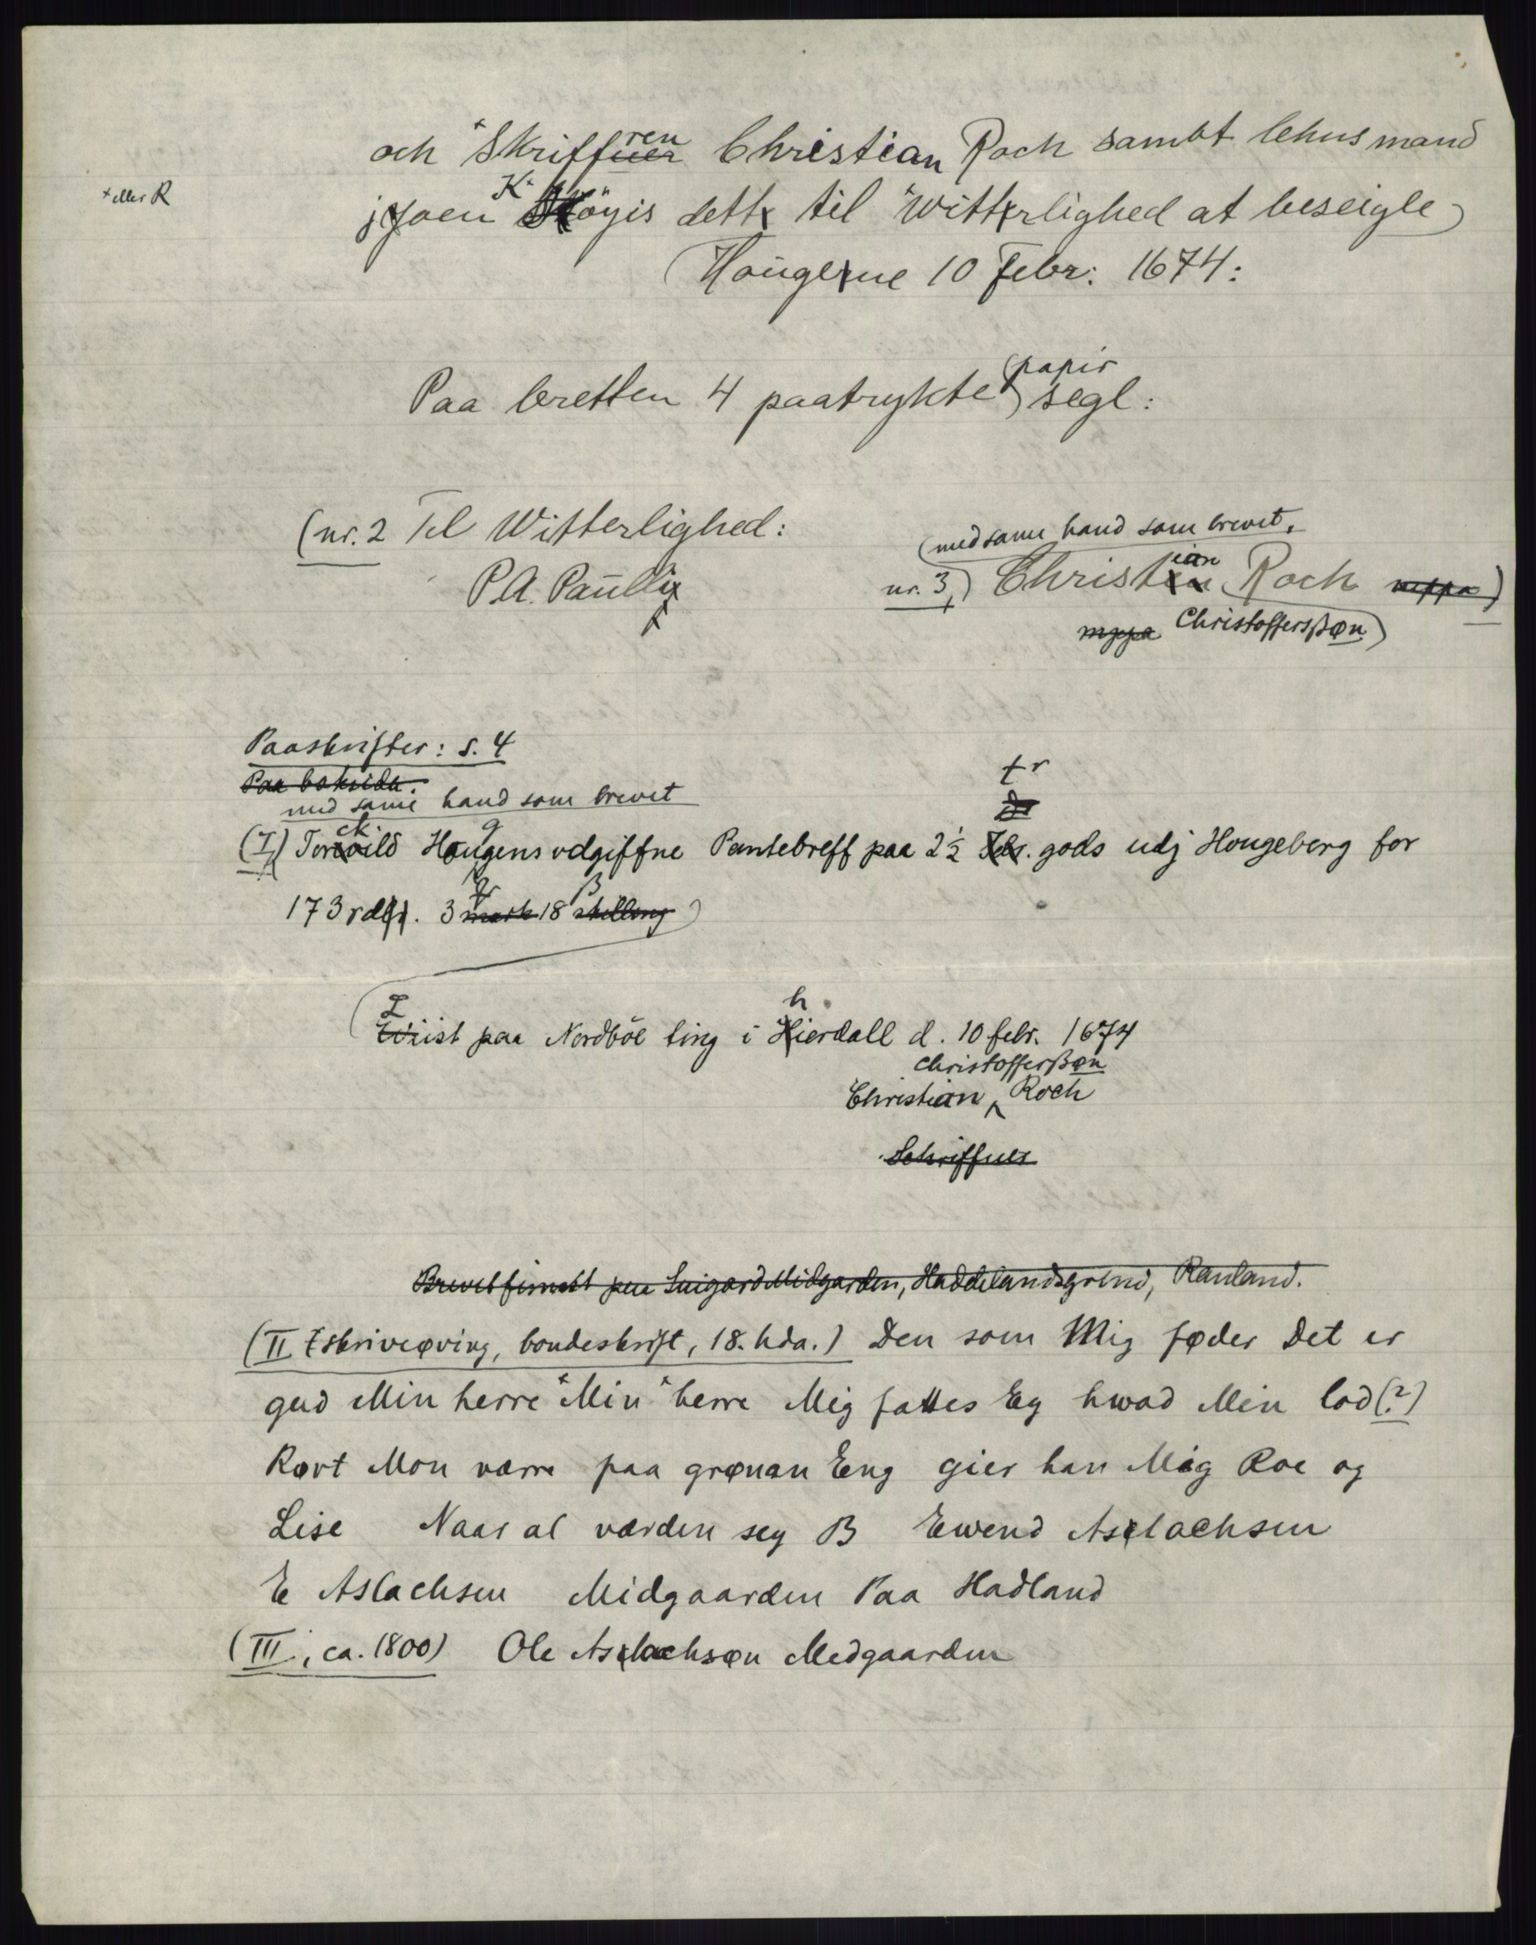 och Skriffueren Christian Roch sambt lehnsmand
+ eller R
joen Köyis dett til Witterlighed at beseigle
Haugerne 10 Febr: 1674:
Paa bretten 4 paatrykte (papir) segl:
(nr. 2 Til Witterlighed:
P.A. Paulli
(med same hand som brevet,
nr. 3,) Christian Roch mppa)
mppa Christofferssøn)
Paaskrifter: s. 4
Paa baksida.
med same hand som brevet
(I) Torckild Haugens vdgiffne Pantebreff paa 2½ tr gods udj Hougeberg for
173 rd. 3 mark 18 skilling ß)
Læist paa Nordböe ting i hierdall d. 10 febr. 1674
Christofferssøn
Christian Roch
Schriffuer
Brevet finnest paa Midgarden, Haddelandsgrend, Rauland.
(II Skriveøving, bondeskrift, 18. hda.) Den som Mig føder Det er
gud Min herre Min herre Mig fattes Eg hwad Min lod (?)
Rovt Mon værre paa grønan Eng gier han Mig Roe og
Lise Naar al værden seg B Ewend Aslachsen
E Aslachsen Midgaarden Paa Hadland
(III, ca. 1800) Ole Aslachsøn Medgaarden